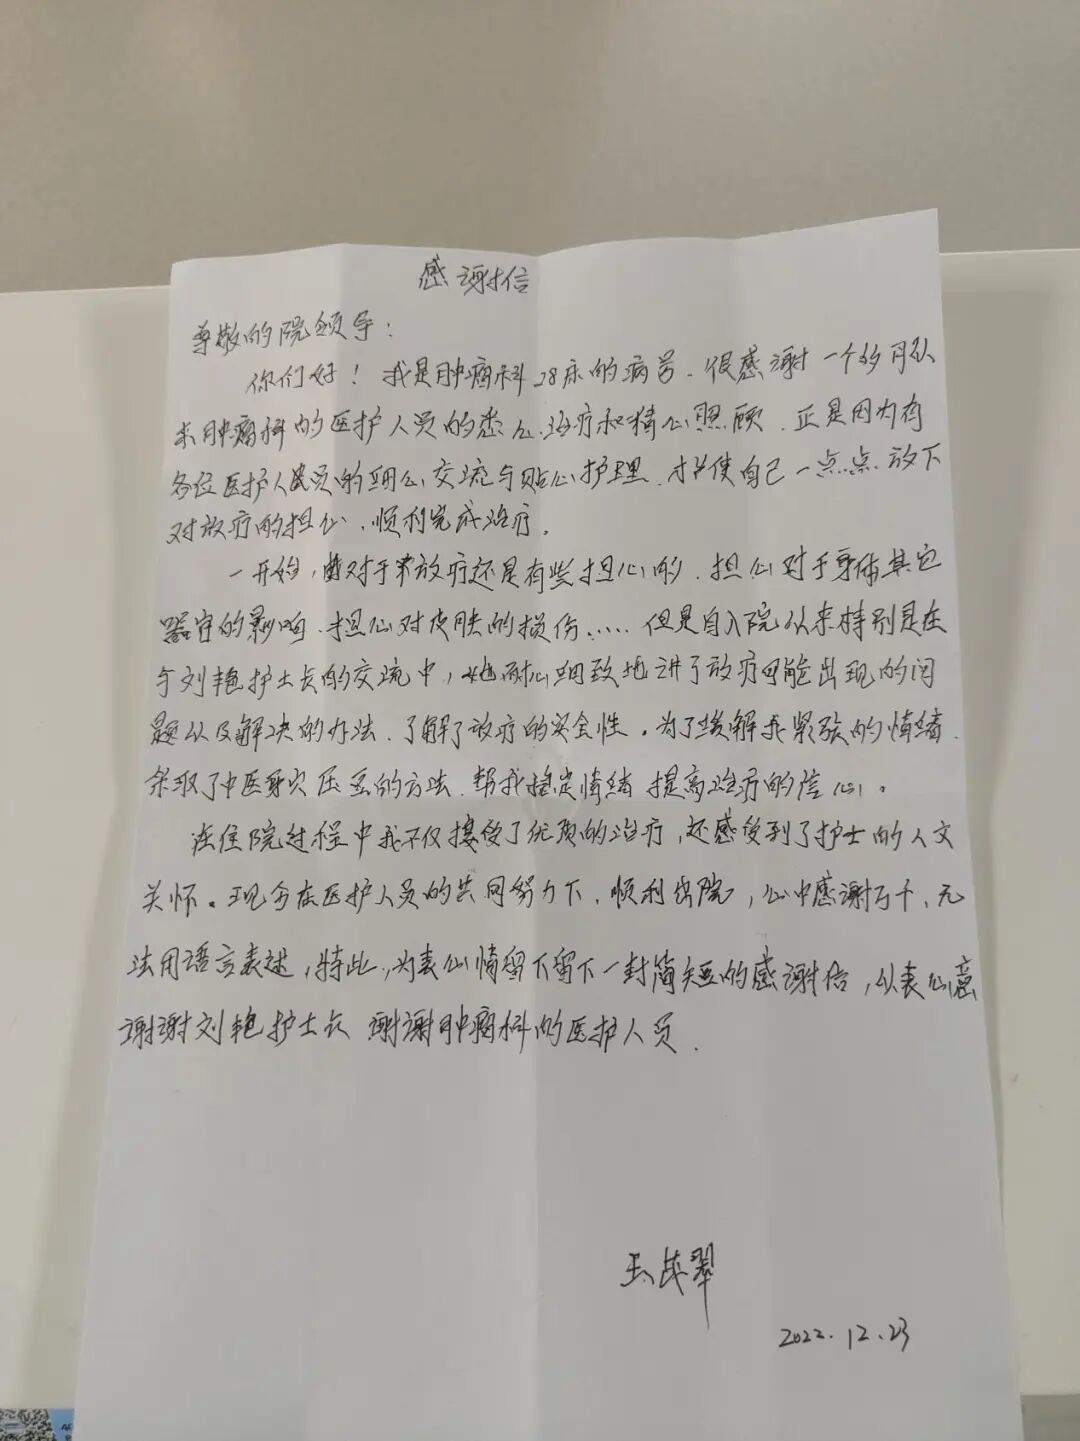 感谢信
尊敬的院领导：
你们好！我是肿瘤科28床的病号.很感谢一个多月以
来肿瘤科的医护人员的悉心治疗和精心照顾.正是因为有
各位医护人员的细心交流与贴心护理.才能使自己一点点放下
对放疗的担心.顺利完成治疗。
一开始，对于放疗还是有些担心的.担心对于身体其它
器官的影响.担心对皮肤的损伤……但是自入院以来特别是在
与刘艳护士长的交流中，她耐心细致地讲了放疗可能出现的问
题以及解决的办法.了解了放疗的安全性。为了缓解我紧张的情绪.
采取了中医耳穴压豆的方法.帮我稳定情绪提高治疗的信心。
在住院过程中我不仅接受了优质的治疗，还感受到了护士的人文
关怀。现今在医护人员的共同努力下.顺利出院，心中感谢万千.无
法用语言表述，特此，为表心情留下留下一封简短的感谢信，以表心意
谢谢刘艳护士长 谢谢肿瘤科的医护人员.
翠
2022.12.23